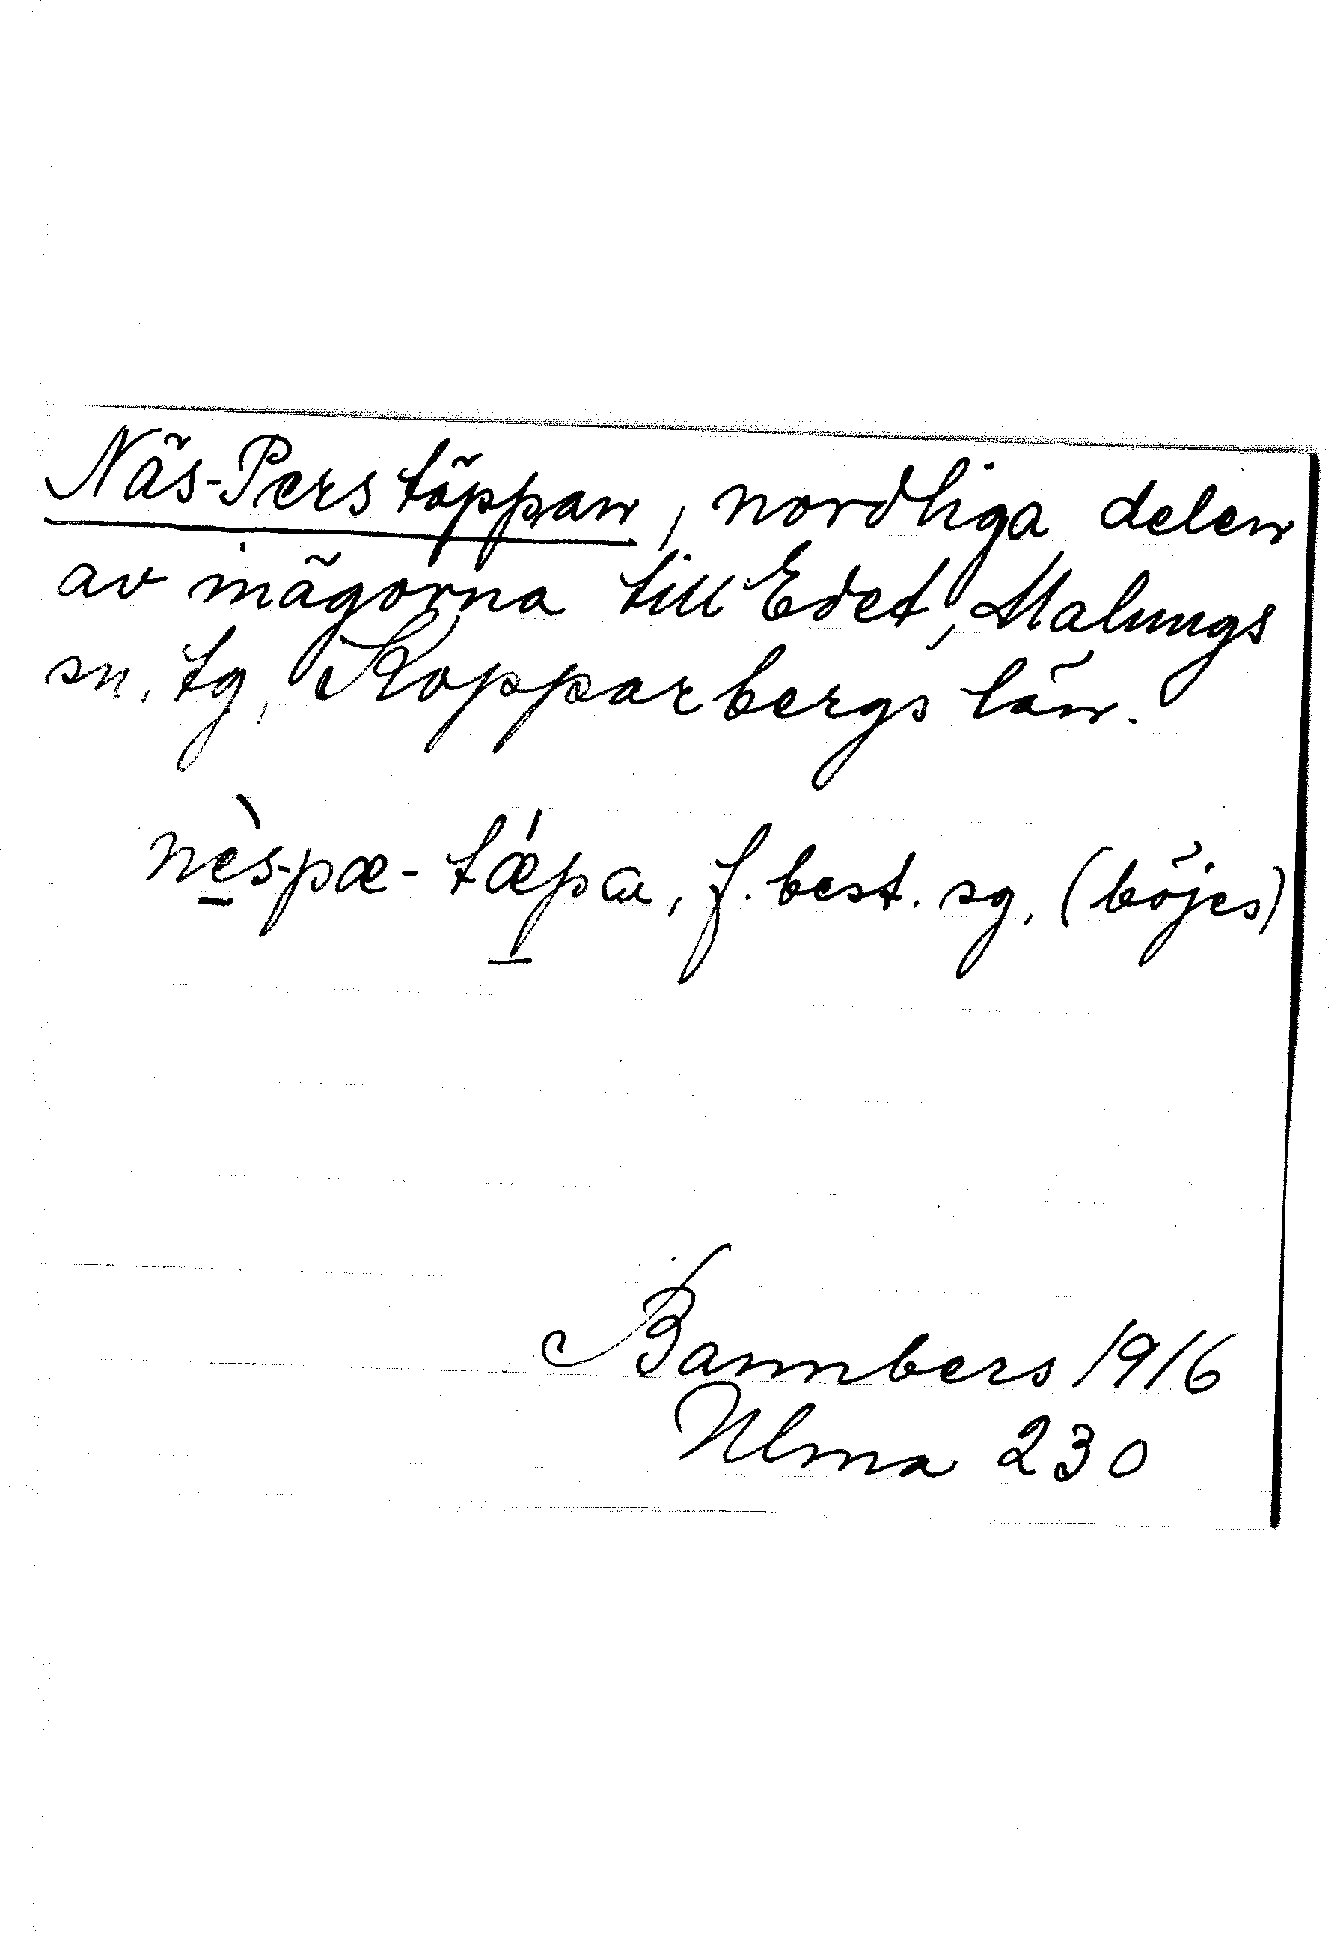 Näs-Pers täppan, nordliga delen
av inägorna till Edet, Malungs
sn. tg, Kopparbergs län.
nè̱s-pæ-tǽ̱pa, f. best. sg. (böjes)
Bannbers 1916
Ulma 230